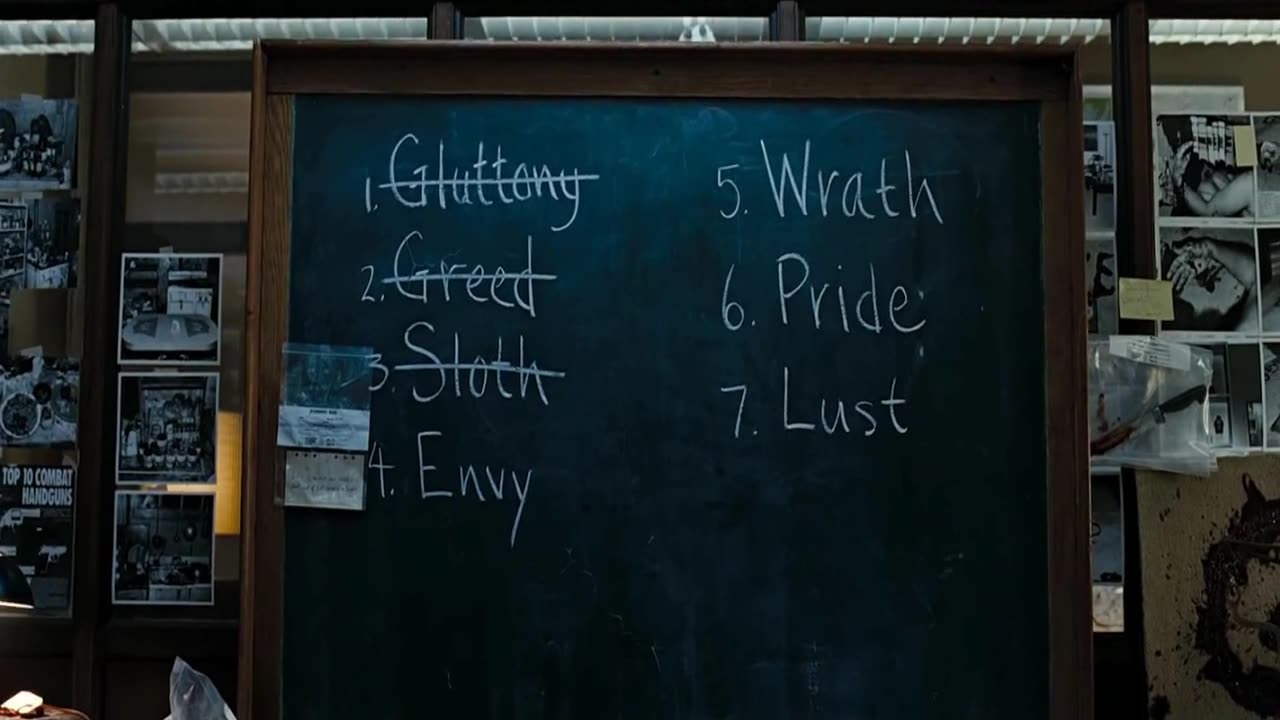 1. Gluttony
2. Greed
3. Sloth
4. Envy
5. Wrath
6. Pride
7. Lust
TOP 10 COMBAT
HANDGUNS